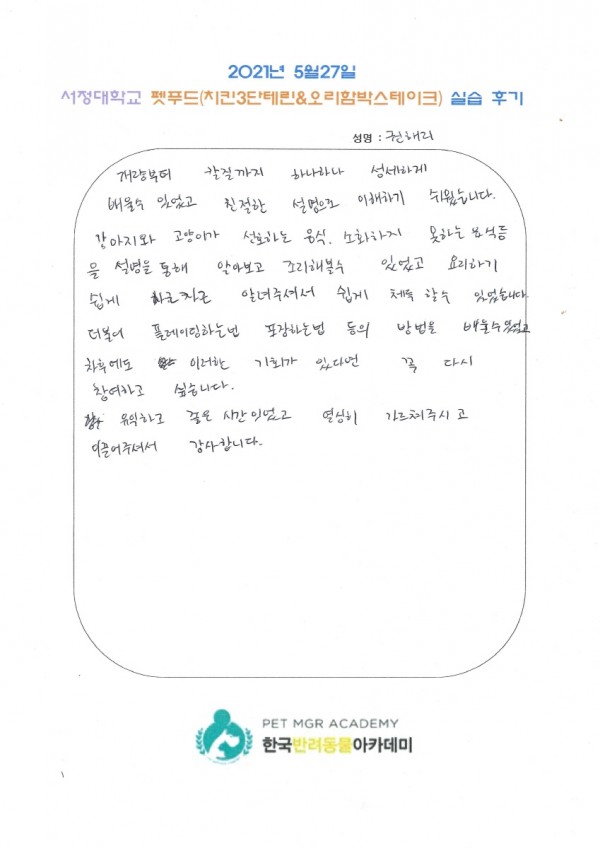 2021년 5월27일
서정대학교 펫푸드(치킨3단테린&오리함박스테이크) 실습 후기
성명 : 권해리
계량부터 칼질까지 하나하나 섬세하게
배울수 있었고 친절한 설명으로 이해하기 쉬웠습니다.
강아지와 고양이가 선호하는 음식, 소화하지 못하는 음식등
을 설명을 통해 알아보고 조리해볼수 있었고 요리하기
쉽게 알려주셔서 쉽게 체득 할수 있었습니다.
더불어 플레이팅하는법 포장하는법 등의 방법을 배울수있었고
차후에도 이러한 기회가 있다면 꼭 다시
참여하고 싶습니다.
유익하고 좋은 시간이었고 열심히 가르쳐주시고
이끌어주셔서 감사합니다.
PET MGR ACADEMY
한국반려동물아카데미